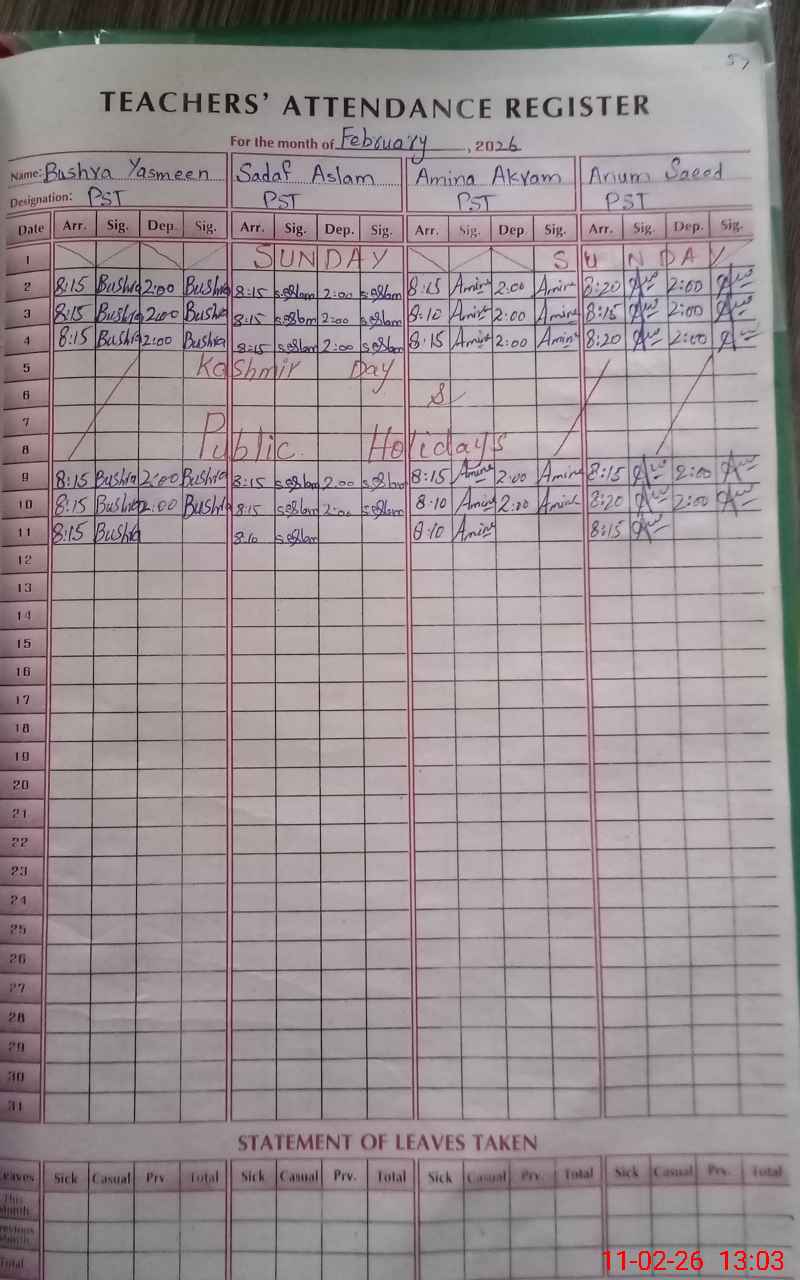 57
TEACHERS' ATTENDANCE REGISTER
For the month of February, 2026
Name: Bushra Yasmeen Sadaf Aslam Amina Akram Anum Saeed
Designation: PST PST PST PST
Date Arr. Sig. Dep. Sig. Arr. Sig. Dep. Sig. Arr. Sig. Dep. Sig. Arr. Sig. Dep. Sig.
1 SUNDAY SUNDAY
2 8:15 Bushra 2:00 Bushra 8:15 2:00 8:15 Amina 2:00 Amina 8:20 2:00
3 8:15 Bushra 2:00 Bushra 8:15 2:00 8:10 Amina 2:00 Amina 8:15 2:00
4 8:15 Bushra 2:00 Bushra 8:15 2:00 8:15 Amina 2:00 Amina 8:20 2:00
5 Kashmir Day
6 &
7
8 Public Holidays
9 8:15 Bushra 2:00 Bushra 8:15 2:00 8:15 Amina 2:00 Amina 8:15 2:00
10 8:15 Bushra 2:00 Bushra 8:15 2:00 8:10 Amina 2:00 Amina 8:20 2:00
11 8:15 Bushra 8:10 8:10 Amina 8:15
12
13
14
15
16
17
18
19
20
21
22
23
24
25
26
27
28
29
30
31
STATEMENT OF LEAVES TAKEN
Leaves Sick Casual Prv Total Sick Casual Prv. Total Sick Casual Prv. Total Sick Casual Prv. Total
This Month
Previous Month
Total
11-02-26 13:03